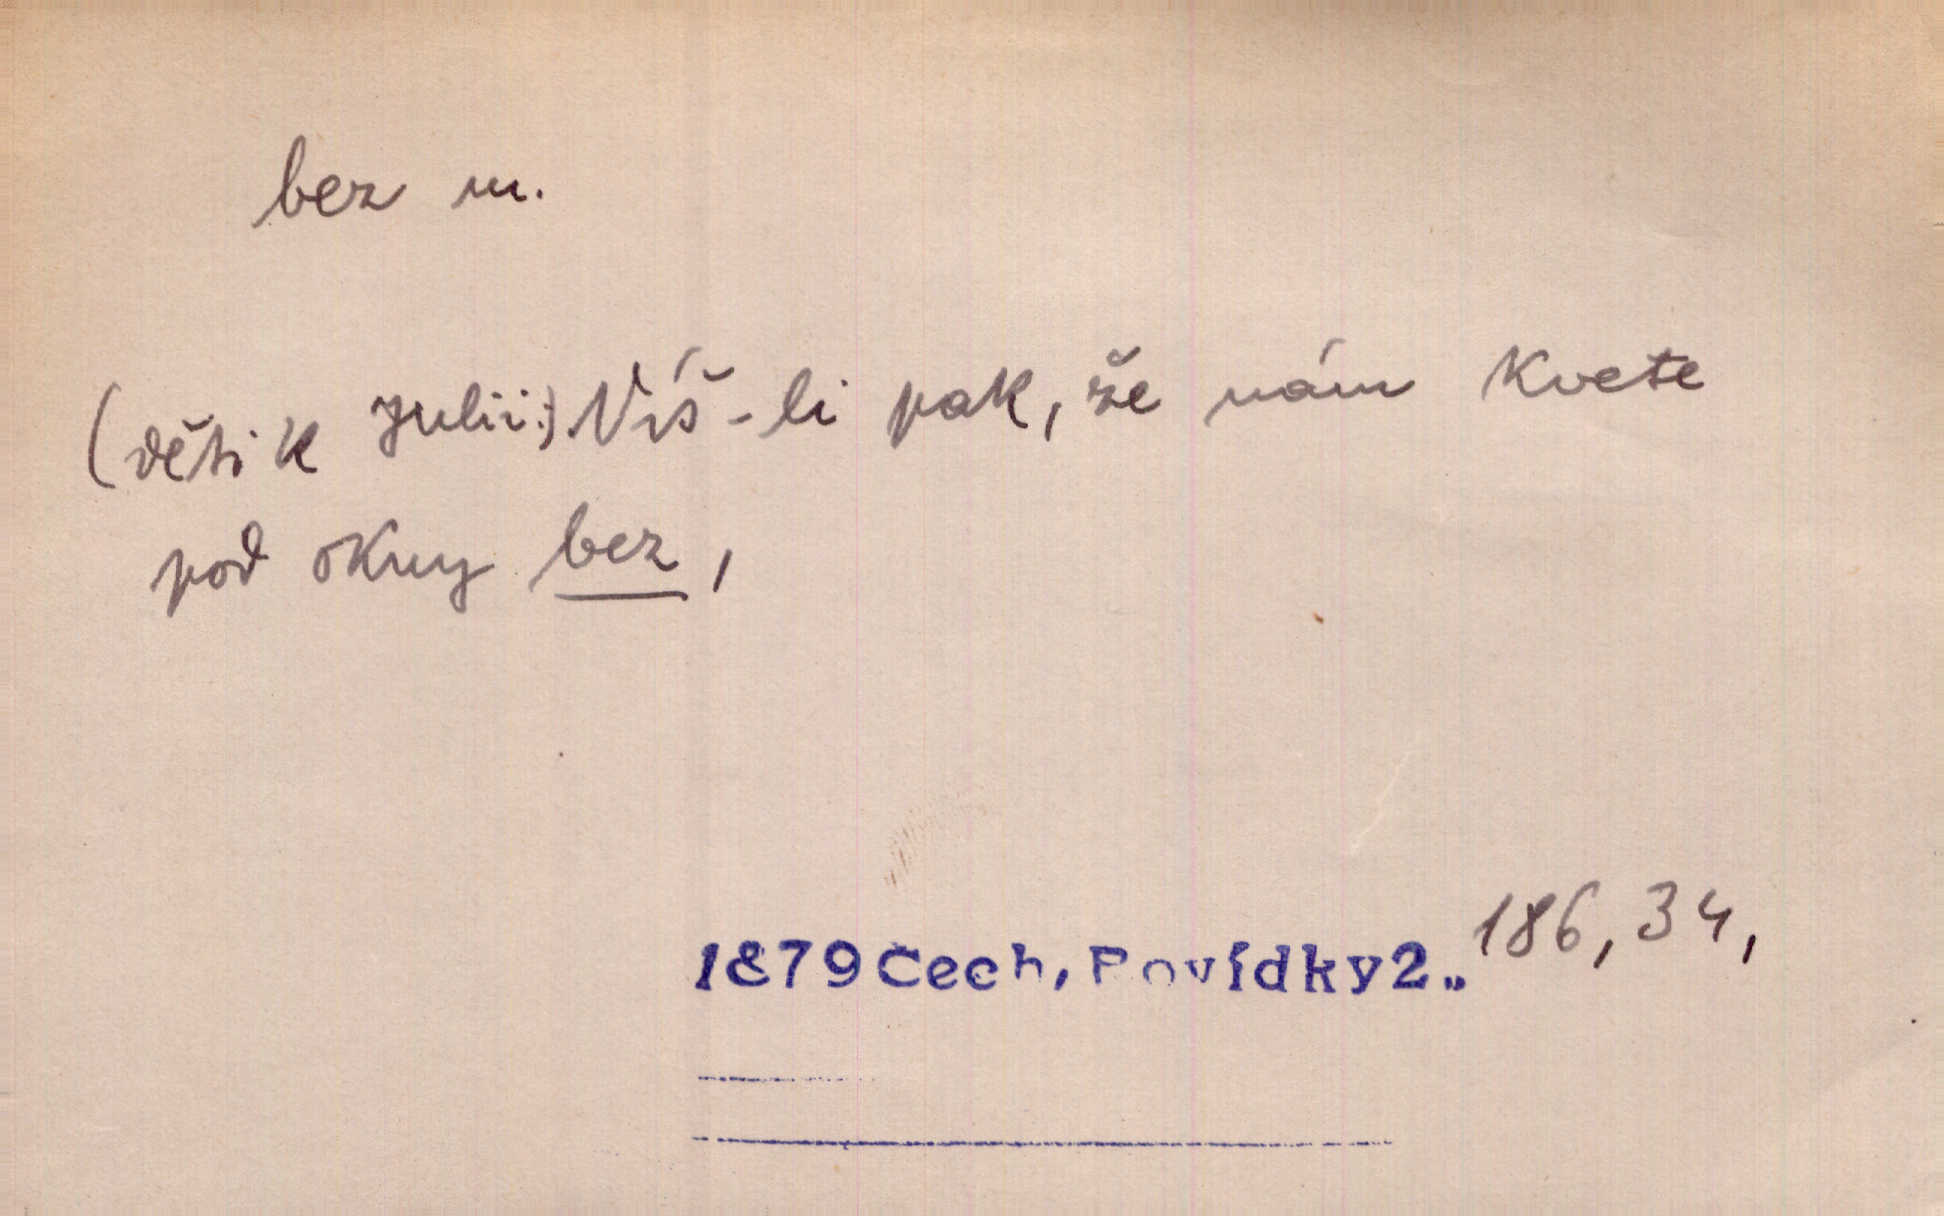 bez m.
(děti k Julii:) Víš-li pak, že nám kvete
pod okny bez,
1879 Čech, Povídky 2., 186, 34,